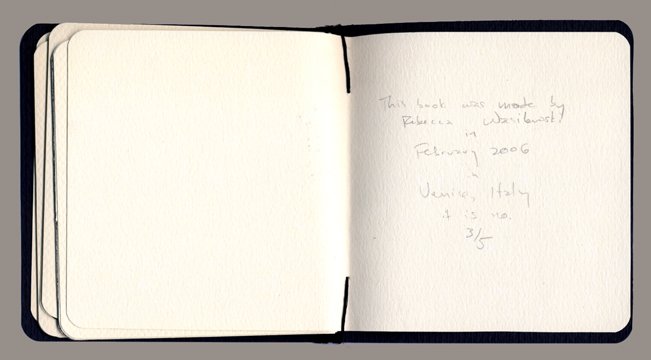 This book was made by
Rebecca Wasilowski
in
February 2006
in
Venice, Italy
it is no.
3/5